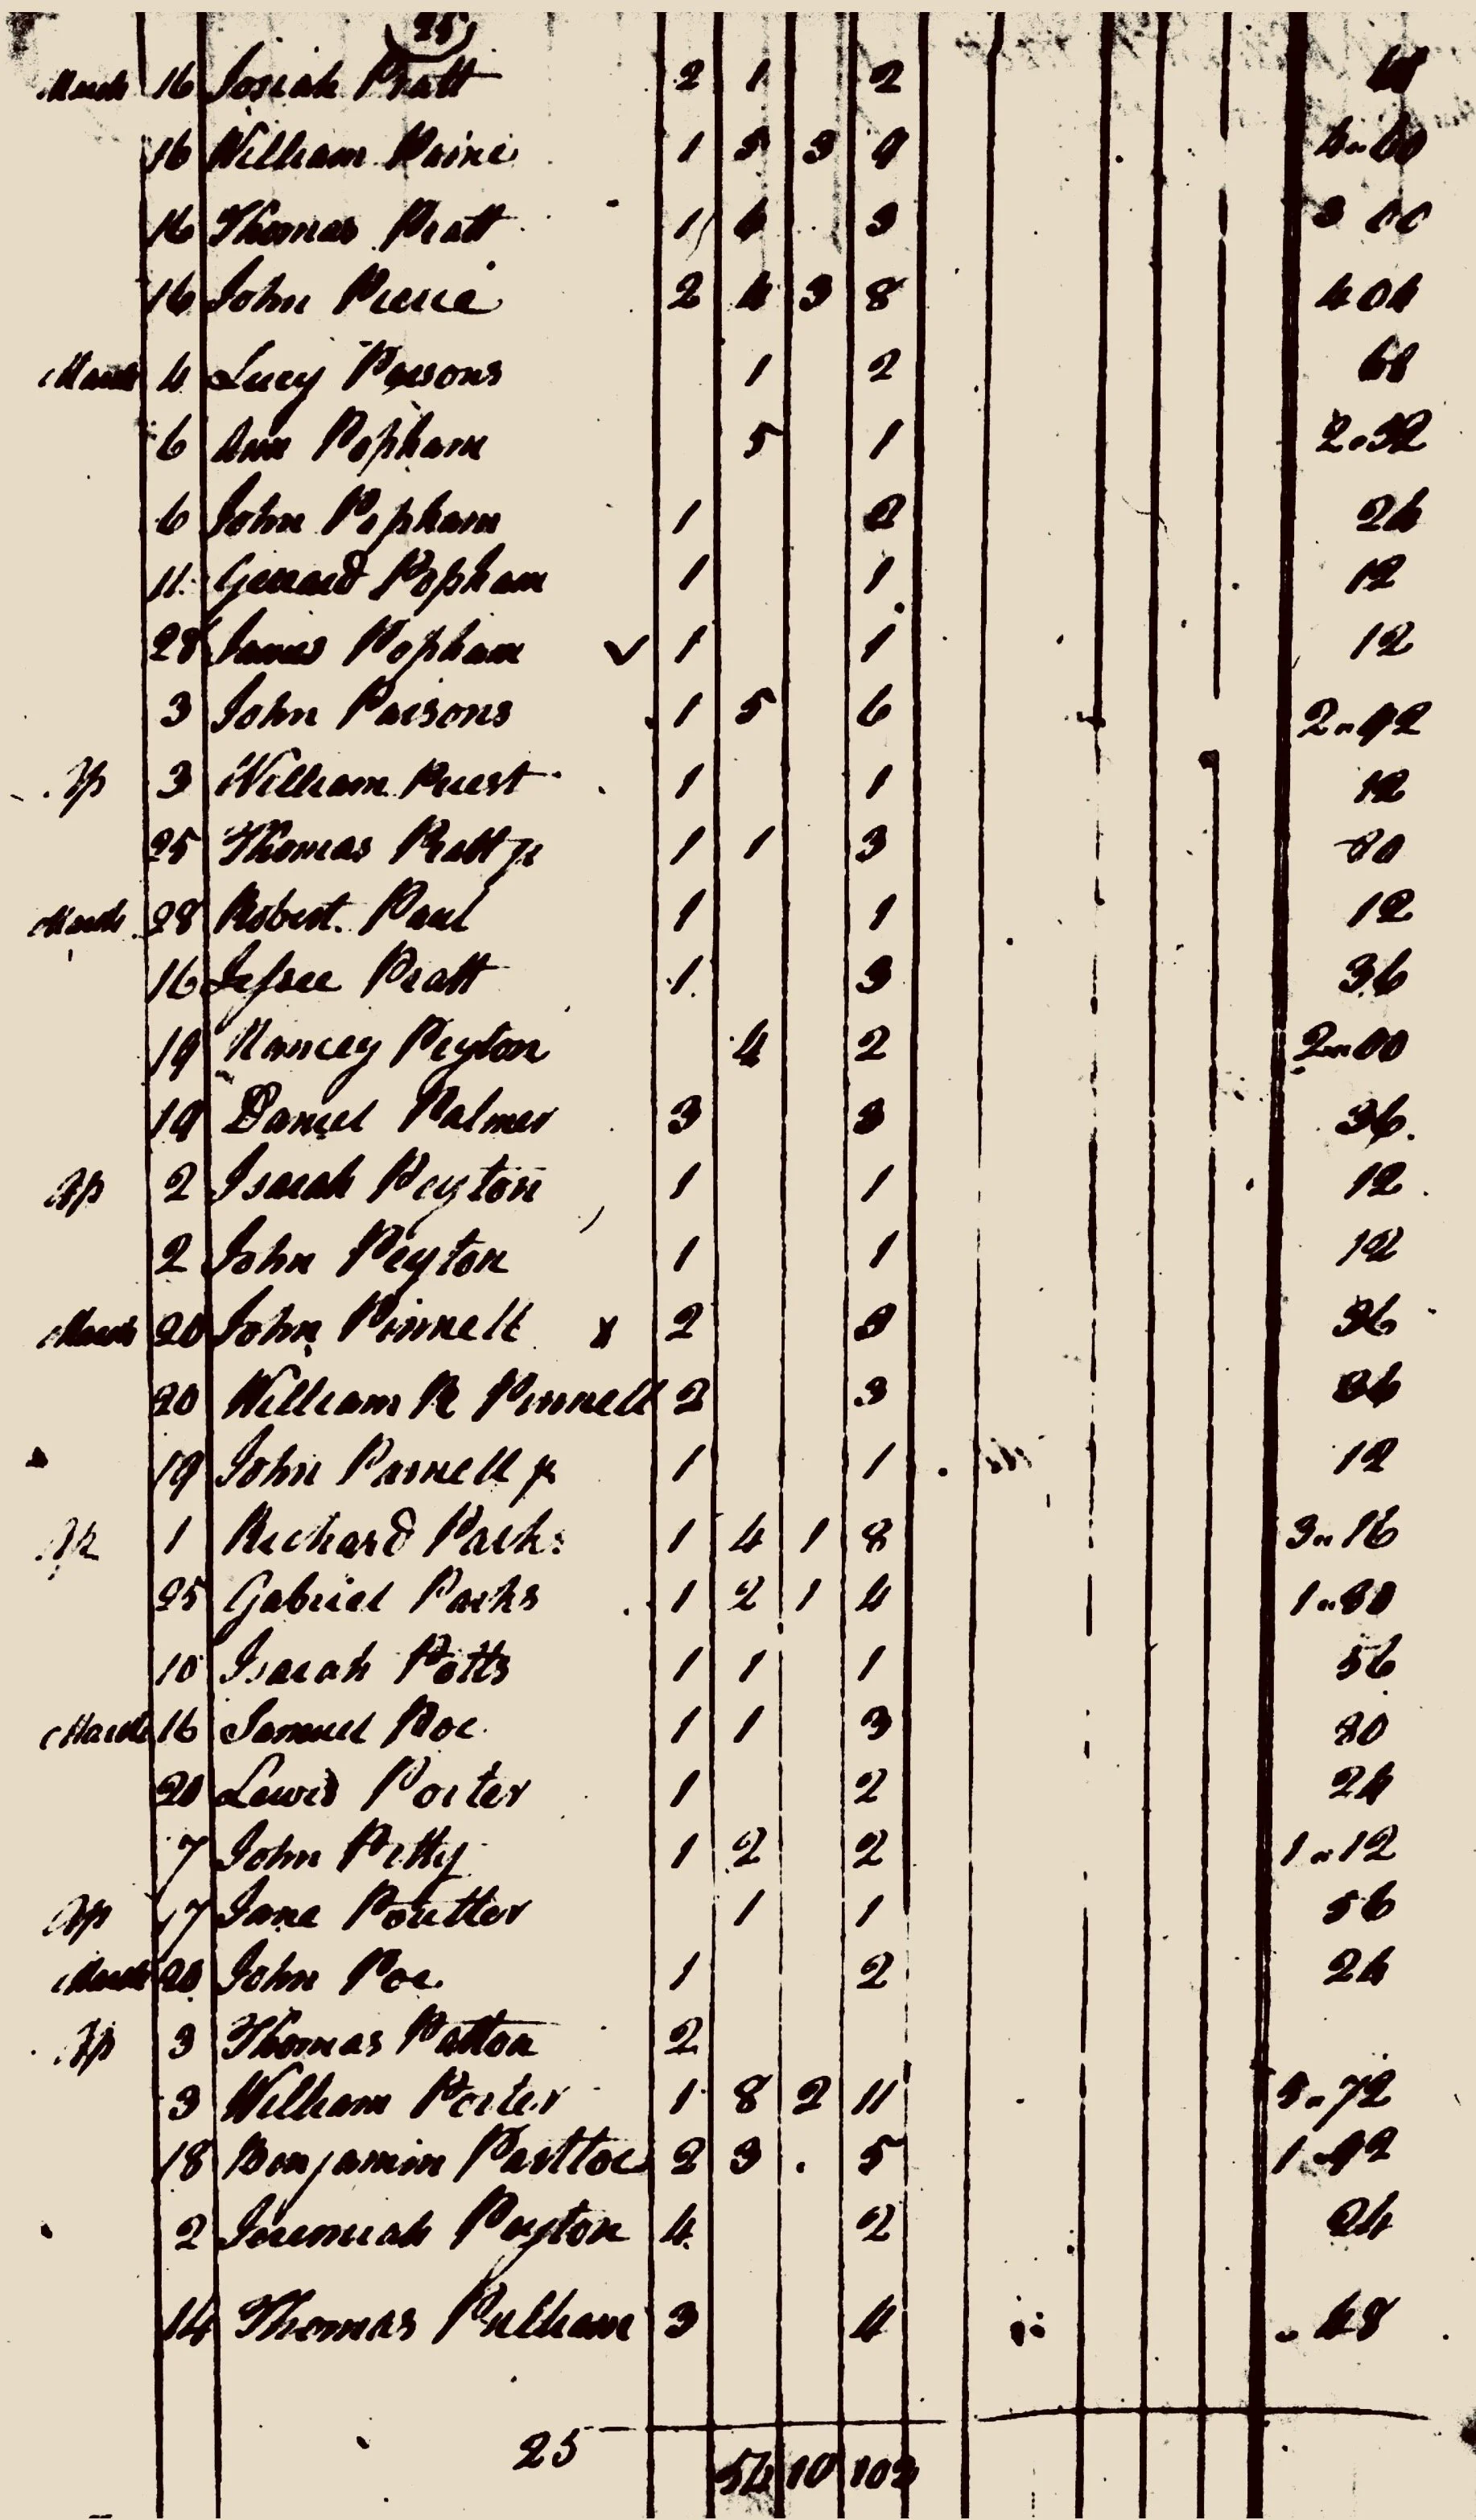 25
March 16 Josiah Pratt 2 1 2 68
16 William Paine 1 5 3 9
16 Thomas Pratt 1 6 3 3 00
16 John Pierce 2 4 3 8 4 04
March 4 Lucy Parsons 1 2 68
6 Ann Popham 5 1 2.32
6 John Popham 1 2 24
11 Gerrard Popham 1 1 12
28 James Popham ✓ 1 1 12
3 John Parsons 1 5 6 2.92
Ap 3 William Priest 1 1 12
25 Thomas Pratt jr 1 1 3 80
March 28 Robert Paul 1 1 12
16 Pratt 1 3 36
19 Nancey Peyton 4 2 2.00
19 Daniel Palmer 3 3 36
Ap 2 Isaiah Peyton 1 1 12
2 John Peyton 1 1 12
March 20 John Pinnell x 2 3 36
20 William R Pinnell 2 3 36
19 John Parnell jr 1 1 12
Ap 1 Richard Parks 1 4 1 8 3.. 16
25 Gabriel Parks 1 2 1 4 1..80
10 Isaiah Potts 1 1 1 56
March 16 Samuel Poe 1 1 3 80
20 Lewis Porter 1 2 24
7 John Petty 1 2 2 1..12
Ap 17 Jane Poutter 1 1 56
March 20 John Poe 1 2 24
Ap 3 Thomas Patton 2
3 William Porter 1 8 2 11 5.72
18 Benjamin Parttoe 2 3 5 1.92
2 Jeremiah Peyton 4 2 24
14 Thomas Pulham 3 4 48
25 54 10 103